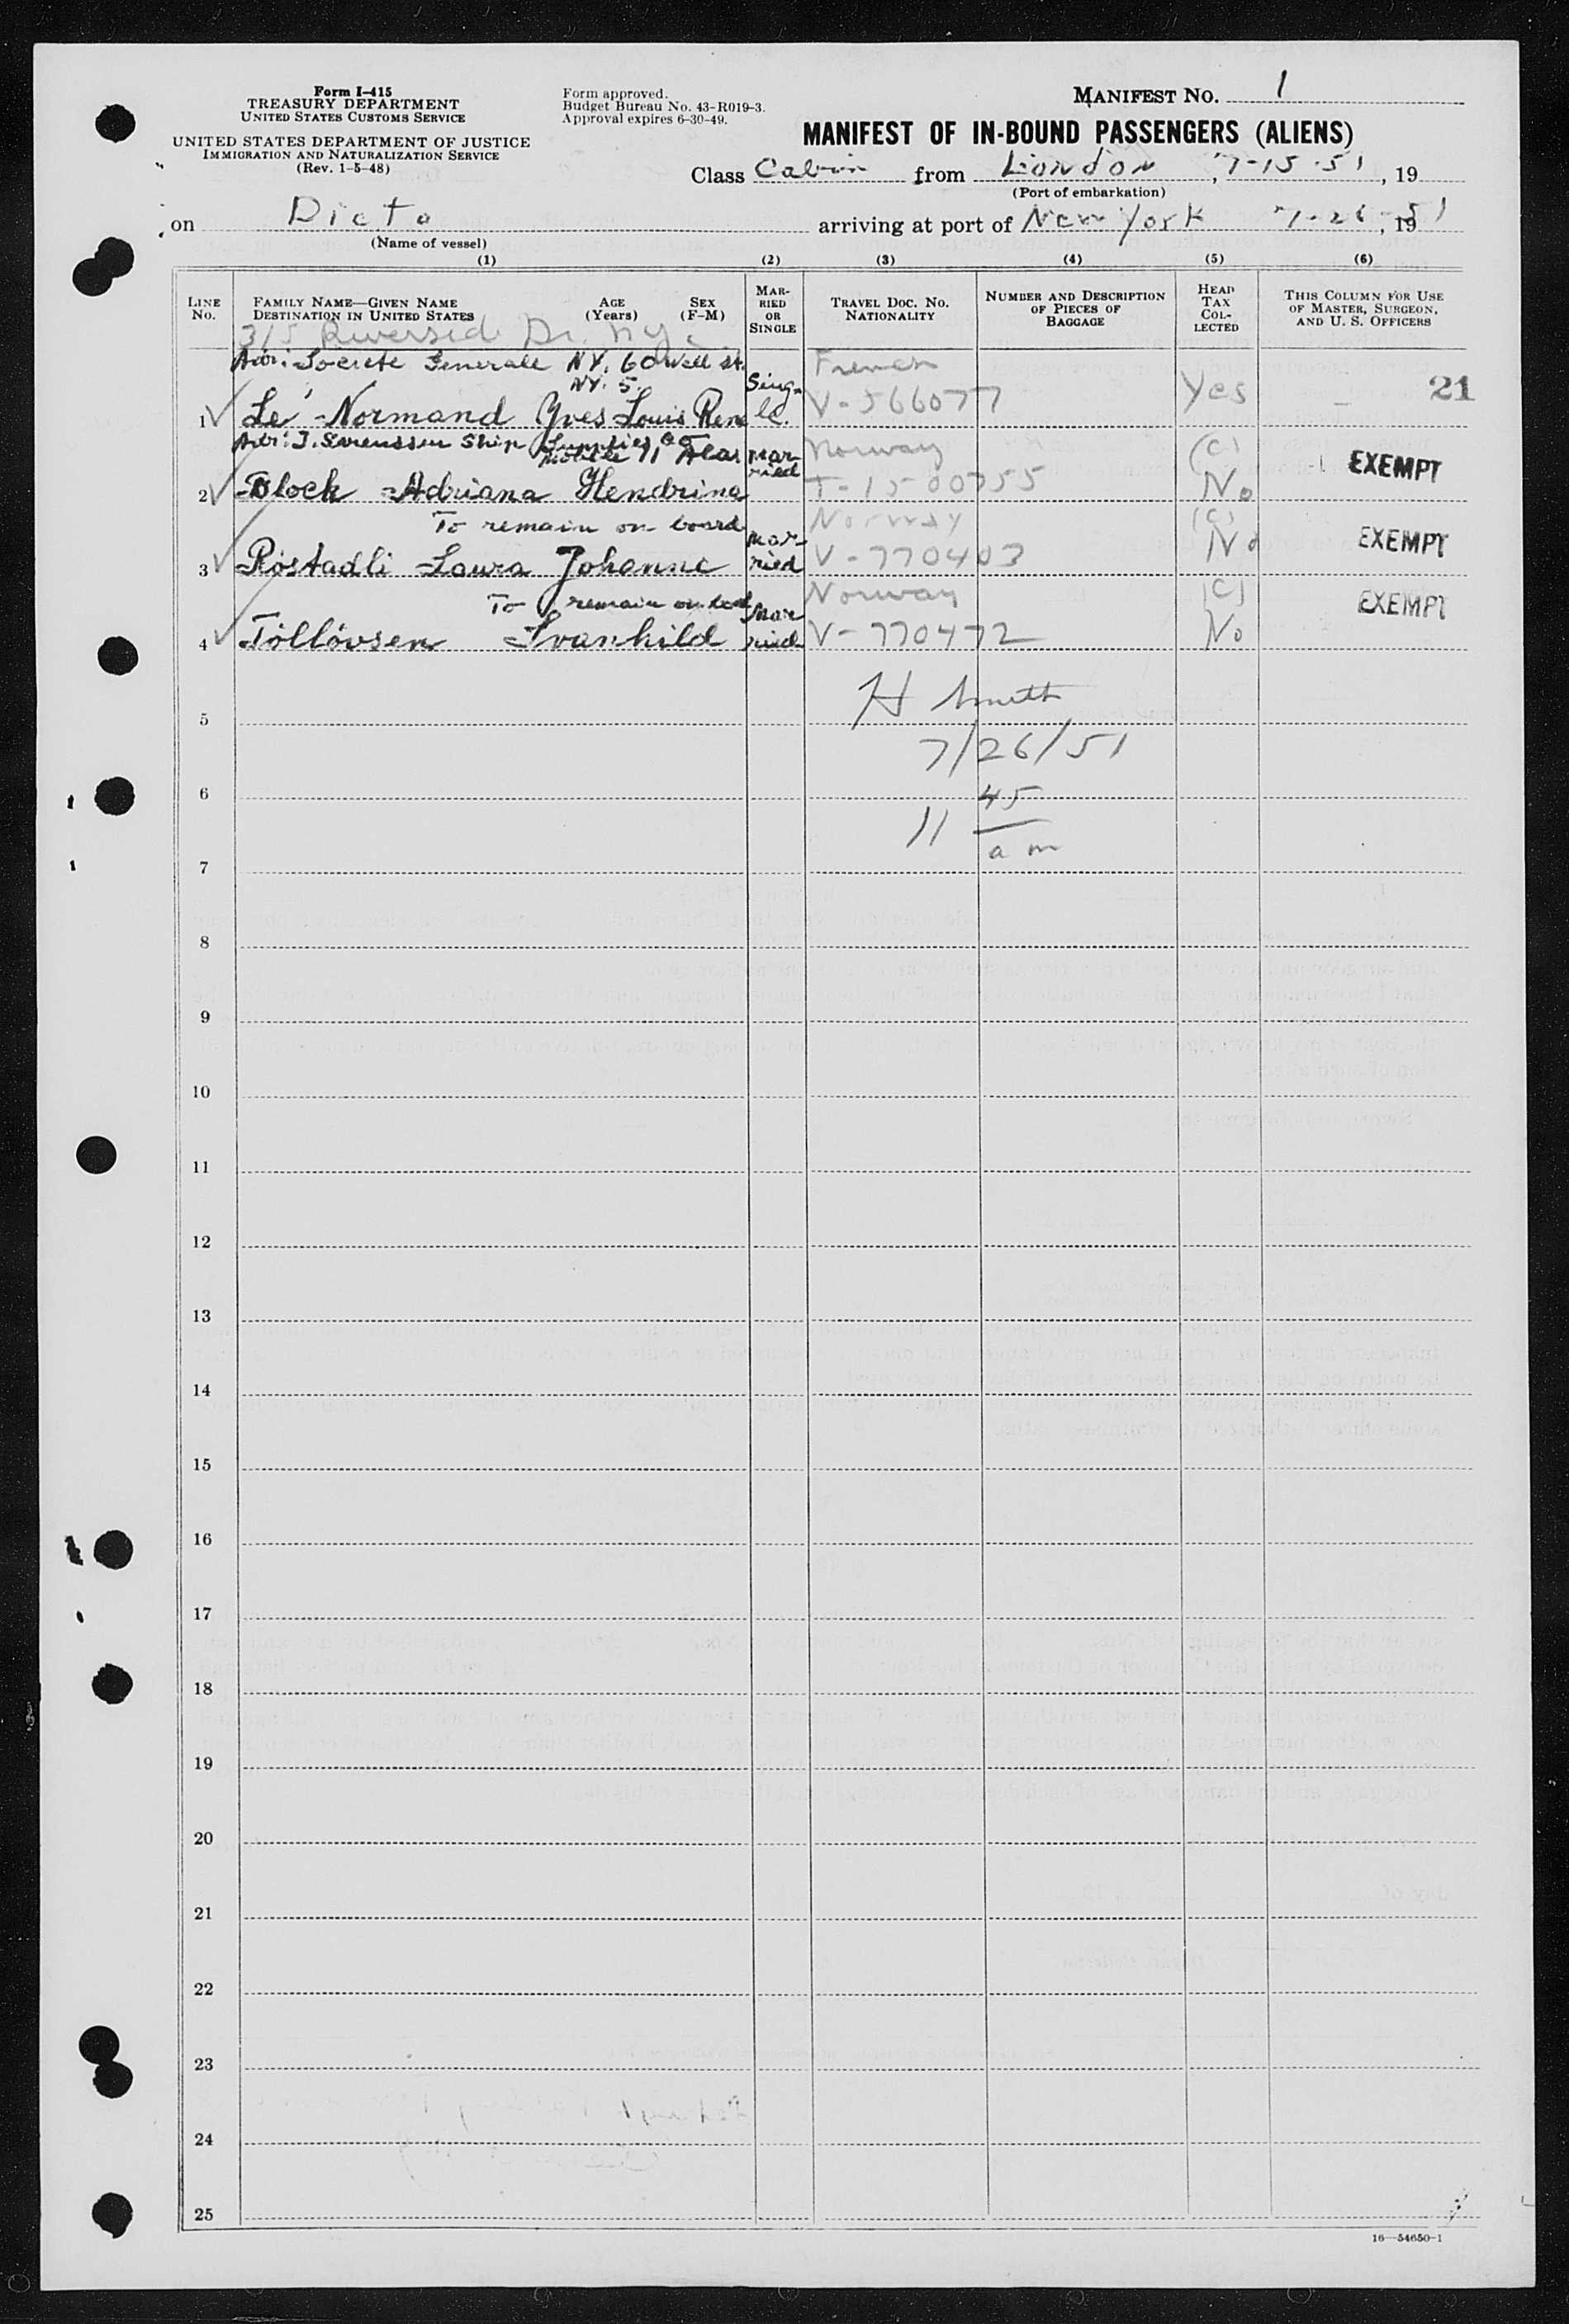 Form I-415
TREASURY DEPARTMENT
UNITED STATES CUSTOMS SERVICE
UNITED STATES DEPARTMENT OF JUSTICE
IMMIGRATION AND NATURALIZATION SERVICE
(Rev. 1-5-48)
Form approved.
Budget Bureau No. 43-R019-3.
Approval expires 6-30-49.
MANIFEST NO. 1
MANIFEST OF IN-BOUND PASSENGERS (ALIENS)
Class Cabin from London, 7-15-51, 19
(Port of embarkation)
on Dicto arriving at port of New York 7-26-51, 19
(Name of vessel)
(1) (2) (3) (4) (5) (6)
LINE No.
FAMILY NAME—GIVEN NAME AGE (Years) SEX (F-M)
DESTINATION IN UNITED STATES
MARRIED OR SINGLE
TRAVEL DOC. NO. NATIONALITY
NUMBER AND DESCRIPTION OF PIECES OF BAGGAGE
HEAD TAX COLLECTED
THIS COLUMN FOR USE OF MASTER, SURGEON, AND U. S. OFFICERS
315 Riverside Dr. NYC
Adr: Societe Generale NY. 60 Wall st. French
NY. 5.
1 Le'-Normand Yves Louis Rene Single. V-566077 Yes - 21
Adr: J. Sorenssen Ship Supplies Co Norway (C)
Mobile 11 Alas
2 Block Adriana Hendrina married T-1500755 No EXEMPT
To remain on board Norway (C)
3 Röstadli Laura Johanne married V-770403 No EXEMPT
To remain on board Norway (C)
4 Töllövsen Svanhild married V-770472 No EXEMPT
H Smith
5
7/26/51
6
11 45 am
7
8
9
10
11
12
13
14
15
16
17
18
19
20
21
22
23
24
25
16—54650-1